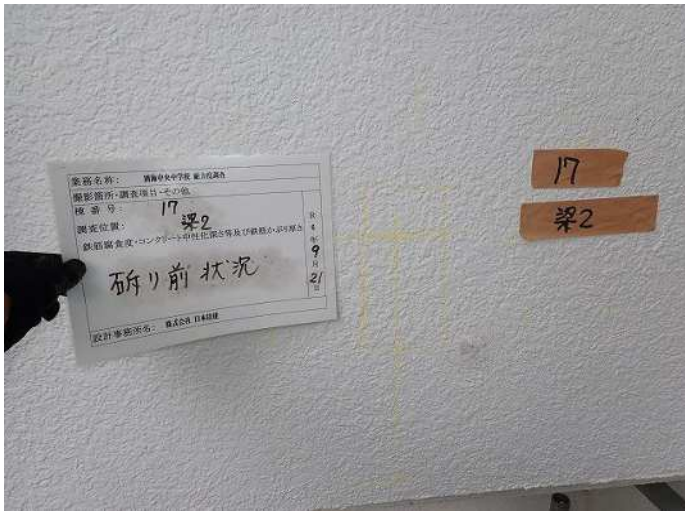 業務名称: 別海中央中学校 耐力度調査
撮影箇所・調査項目・その他
棟番号: 17
調査位置: 梁2
鉄筋腐食度・コンクリート中性化深さ等及び鉄筋かぶり厚さ
斫り前状況
R4年9月21日
設計事務所名: 株式会社
17
梁2